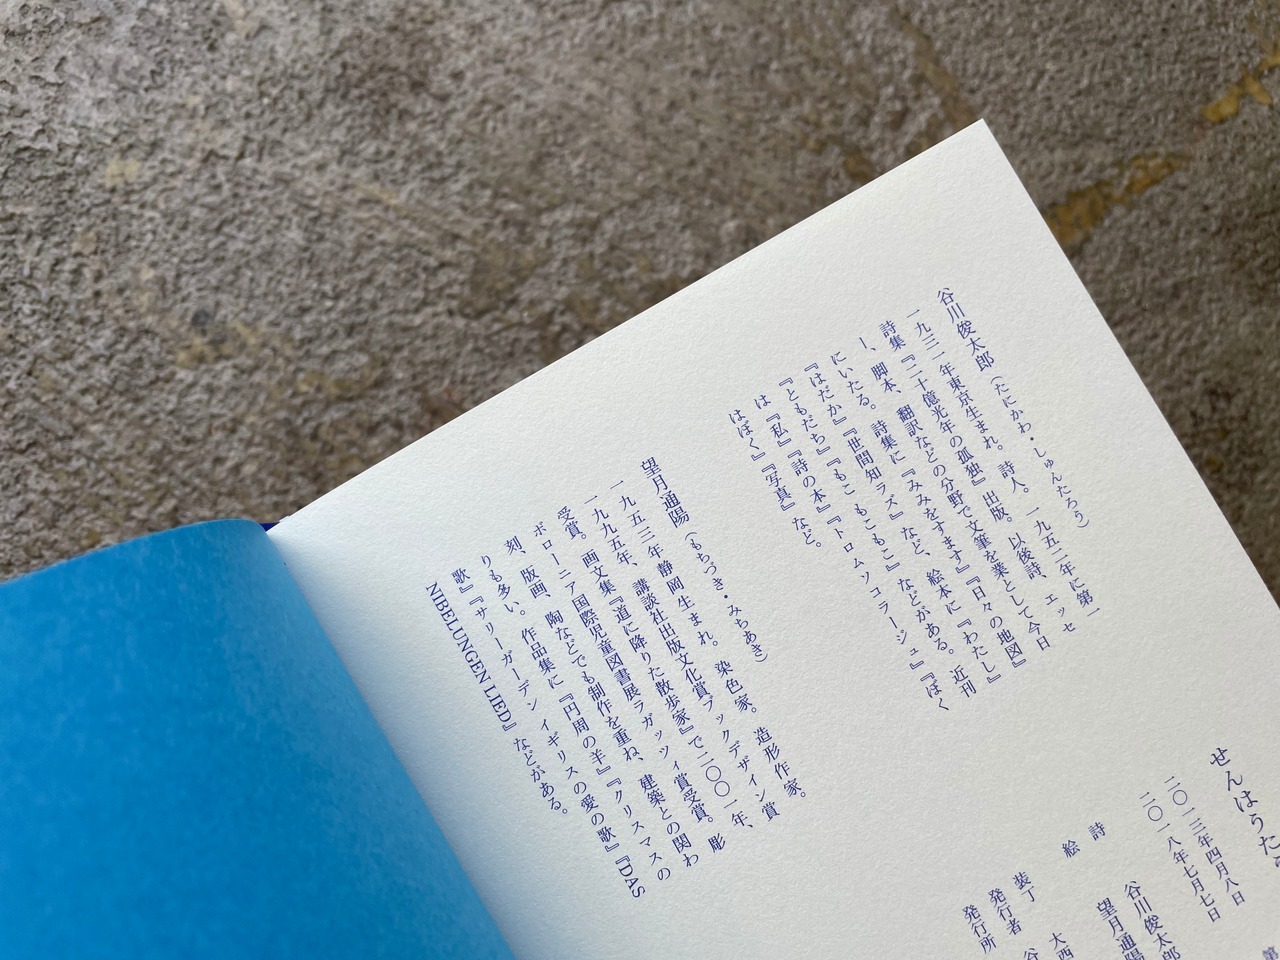 谷川俊太郎（たにかわ・しゅんたろう）
一九三一年東京生まれ。詩人。一九五二年に第一
詩集『二十億光年の孤独』出版。以後詩、エッセ
ー、脚本、翻訳などの分野で文筆を業として今日
にいたる。詩集に『みみをすます』『日々の地図』
『はだか』『世間知ラズ』など、絵本に『わたし』
『ともだち』『もこ もこもこ』などがある。近刊
は『私』『詩の本』『トロムソコラージュ』『ぼく
はぼく』『写真』など。
望月通陽（もちづき・みちあき）
一九五三年静岡生まれ。染色家。造形作家。
一九九五年、講談社出版文化賞ブックデザイン賞
受賞。画文集『道に降りた散歩家』で二〇〇一年、
ボローニア国際児童図書展ラガッツィ賞受賞。彫
刻、版画、陶などでも制作を重ね、建築との関わ
りも多い。作品集に『円周の羊』『クリスマスの
歌』『サリーガーデン イギリスの愛の歌』『DAS
NIBELUNGEN LIED』などがある。
せんはうたう
二〇一三年四月八日 第
二〇一八年七月七日
詩 谷川俊太郎
絵 望月通陽
装丁 大西
発行者 谷
発行所